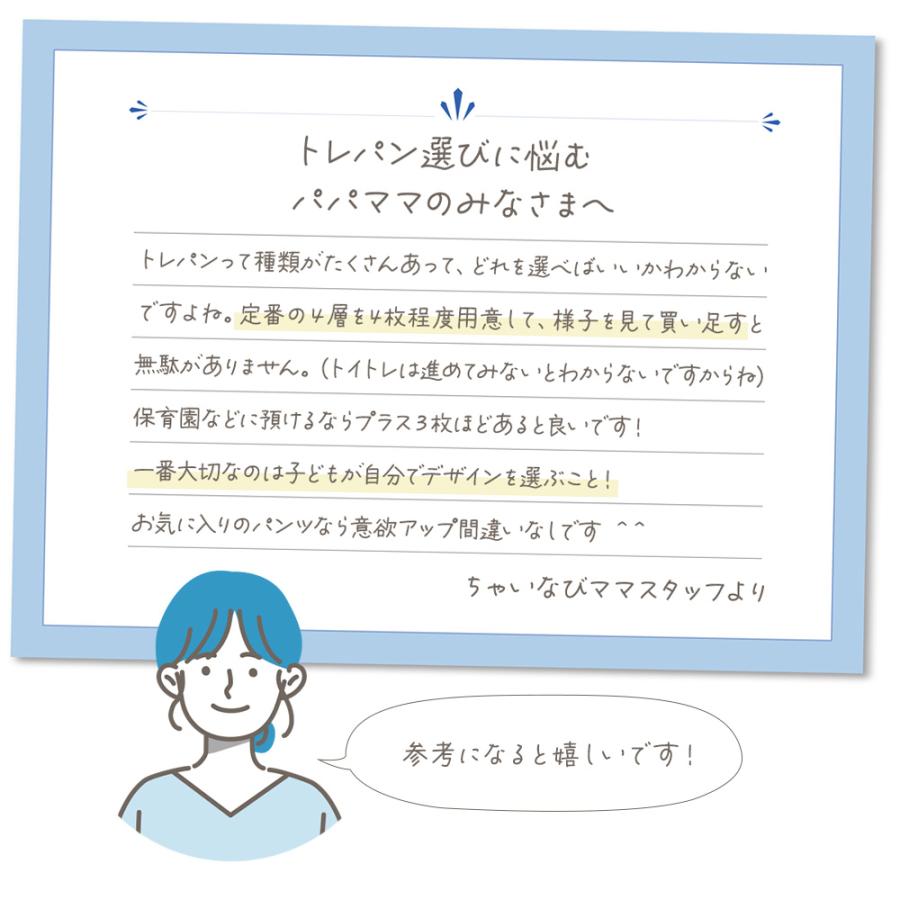 トレパン選びに悩む
パパママのみなさまへ
トレパンって種類がたくさんあって、どれを選べばいいかわからない
ですよね。定番の4層を4枚程度用意して、様子を見て買い足すと
無駄がありません。(トイトレは進めてみないとわからないですからね)
保育園などに預けるならプラス3枚ほどあると良いです!
一番大切なのは子どもが自分でデザインを選ぶこと!
お気に入りのパンツなら意欲アップ間違いなしです ^^
ちゃいなびママスタッフより
参考になると嬉しいです!